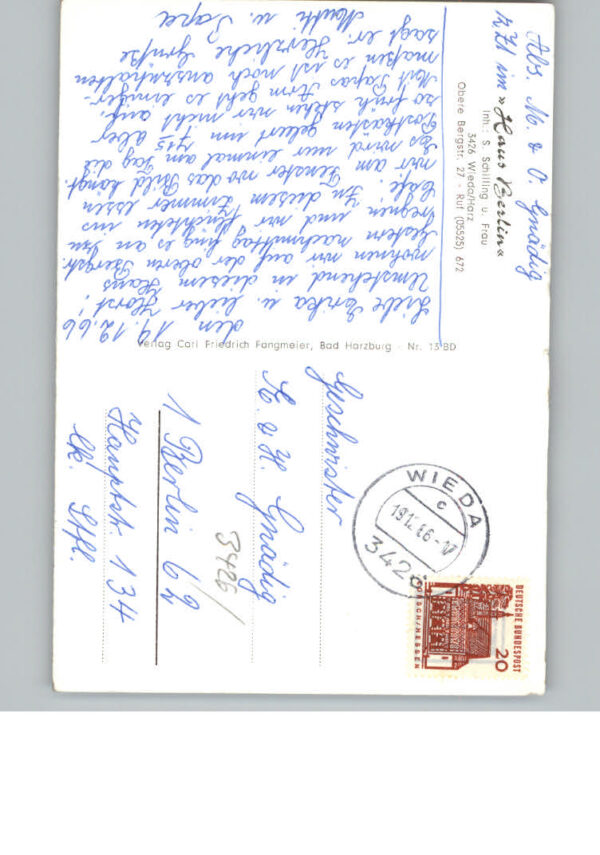 Abs. M. & O. Gnädig
z. Zt. im »Haus Berlin«
Inh.: S. Schilling u. Frau
3426 Wieda/Harz
Obere Bergstr. 27 · Ruf (05525) 672
den 19.12.66
Liebe Erika u. lieber Horst!
Umstehend in diesem Haus
wohnen wir auf der oberen Bergstr.
Gestern nachmittag fing es an zu
regnen und wir flüchteten ins
Café. In diesem Zimmer essen
wir am Fenster wo das Bild hängt.
Es wird nur einmal am Tag die
Postkasten geleert um 7¹⁵ aber
so früh stehen wir nicht auf.
Mit Papas Arm geht es einiger-
maßen es ist noch auszuhalten
sagt er. Herzliche Grüße
Mutti u. Papa
Verlag Carl Friedrich Fangmeier, Bad Harzburg · Nr. 13 BD
Geschwister
& H. Gnädig
1 Berlin 62
Hauptstr. 134
3426/
WIEDA
c
19.12.66-17
3426
DEUTSCHE BUNDESPOST
20
LORSCH/HESSEN